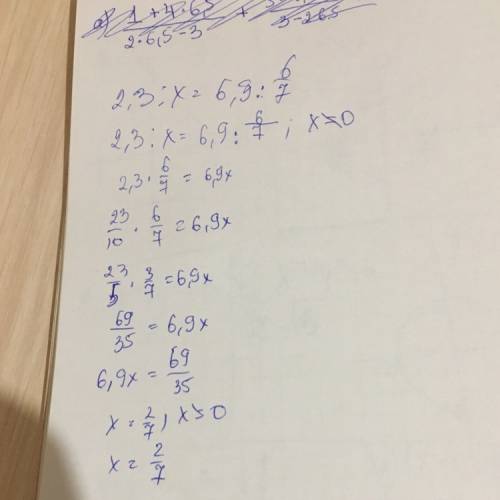 2,3 : x = 6,9 : 6/7
2,3 : x = 6,9 : 6/7 ; x ≠ 0
2,3 · 6/7 = 6,9x
23/10 · 6/7 = 6,9x
23/5 · 3/7 = 6,9x
69/35 = 6,9x
6,9x = 69/35
x = 2/7, x ≠ 0
x = 2/7